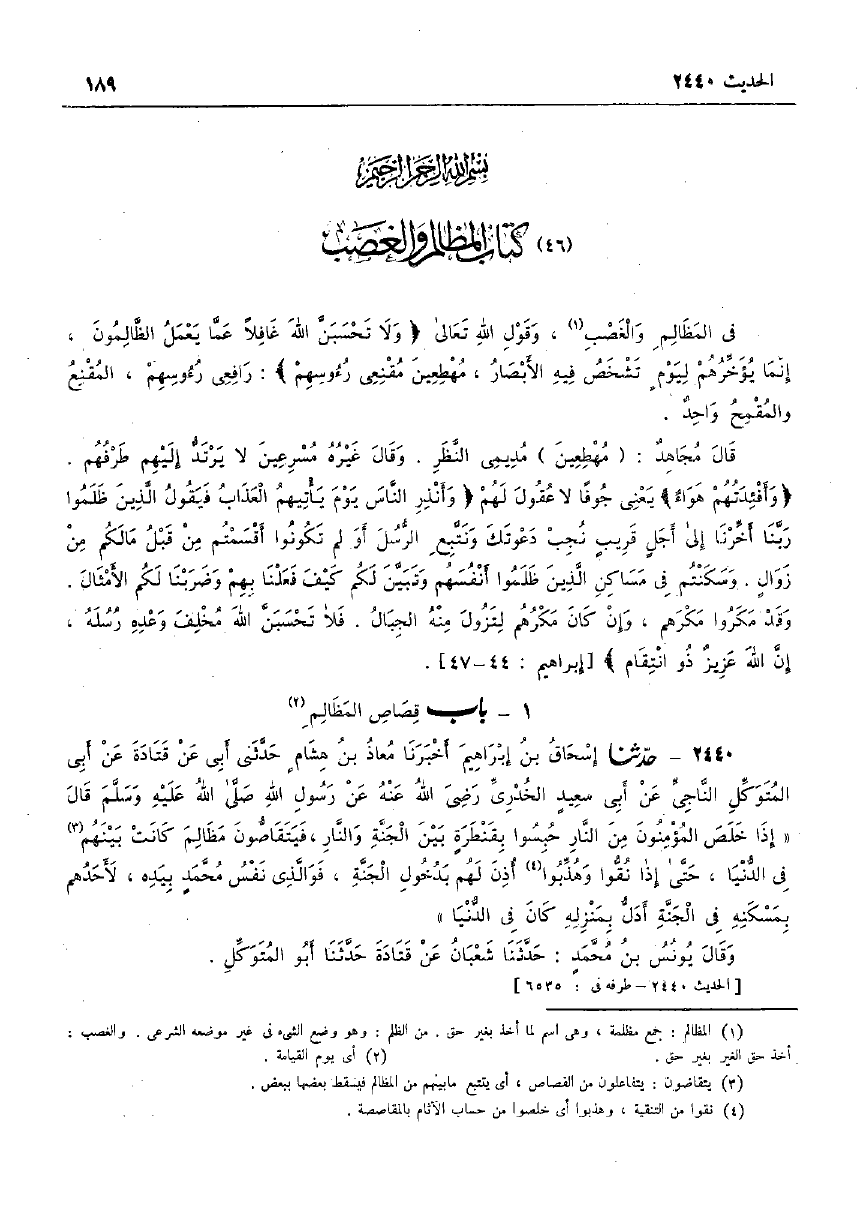 الحديث ٢٤٤٠
١٨٩
بسم الله الرحمن الرحيم
(٤٦) كتاب المظالم والغصب
فى المَظَالِمِ وَالْغَصْبِ(١) ، وَقَوْلِ اللهِ تَعَالىٰ ﴿ وَلَا تَحْسَبَنَّ اللهَ غَافِلاً عَمَّا يَعْمَلُ الظَّالِمُونَ ،
إِنَّمَا يُؤَخِّرُهُمْ لِيَوْمٍ تَشْخَصُ فِيهِ الأَبْصَارُ ، مُهْطِعِينَ مُقْنِعِى رُءُوسِهِمْ ﴾ : رَافِعِى رُءُوسِهِمْ ، المُقْنِعُ
والمُقْمِحُ وَاحِدٌ .
قَالَ مُجَاهِدٌ : ( مُهْطِعِينَ ) مُدِيمِى النَّظَرِ . وَقَالَ غَيْرُهُ مُسْرِعِينَ لا يَرْتَدُّ إِلَيْهِم طَرْفُهُم .
﴿ وَأَفْئِدَتُهُمْ هَوَاءٌ ﴾ يَعْنِى جُوفًا لا عُقُولَ لَهُمْ ﴿ وَأَنْذِرِ النَّاسَ يَوْمَ يَأْتِيهِمُ الْعَذَابُ فَيَقُولُ الَّذِينَ ظَلَمُوا
رَبَّنَا أَخِّرْنَا إِلىٰ أَجَلٍ قَرِيبٍ نُجِبْ دَعْوَتَكَ وَنَتَّبِعِ الرُّسُلَ أَوَ لم تَكُونُوا أَقْسَمْتُم مِنْ قَبْلُ مَالَكُم مِنْ
زَوَالٍ . وَسَكَنْتُم فِى مَسَاكِنِ الَّذِينَ ظَلَمُوا أَنْفُسَهُم وَتَبَيَّنَ لَكُم كَيْفَ فَعَلْنَا بِهِمْ وَضَرَبْنَا لَكُم الأَمْثَالَ .
وَقَدْ مَكَرُوا مَكْرَهم ، وَإِنْ كَانَ مَكْرُهُم لِتَزُولَ مِنْهُ الجِبَالُ . فَلاَ تَحْسَبَنَّ اللهَ مُخْلِفَ وَعْدِهِ رُسُلَهُ ،
إِنَّ اللهَ عَزِيزٌ ذُو انْتِقَام ﴾ [إبراهيم : ٤٤-٤٧] .
١ – باب قِصَاصِ المَظَالِمِ(٢)
٢٤٤٠ – حدّثنا إِسْحَاقُ بنُ إبْرَاهِيمَ أَخْبَرَنَا مُعاذُ بنُ هِشَامٍ حَدَّثَنِى أَبِى عَنْ قَتَادَةَ عَنْ أَبِى
المُتَوَكِّلِ النَّاجِيِّ عَنْ أَبِى سعِيدٍ الخُدْرِىِّ رَضِىَ اللهُ عَنْهُ عَنْ رَسُولِ اللهِ صَلَّى اللهُ عَلَيْهِ وَسَلَّمَ قَالَ
« إِذَا خَلَصَ المُؤْمِنُونَ مِنَ النَّارِ حُبِسُوا بِقَنْطَرَةٍ بَيْنَ الْجَنَّةِ وَالنَّارِ ، فَيَتَقَاصُّونَ مَظَالِمَ كَانَتْ بَيْنَهُم(٣)
فِى الدُّنْيَا ، حَتَّىٰ إِذَا نُقُّوا وَهُذِّبُوا(٤) أُذِنَ لَهُم بِدُخُولِ الْجَنَّةِ ، فَوَالَّذِى نَفْسُ مُحَمَّدٍ بِيَدِهِ ، لَأَحَدُهم
بِمَسْكَنِهِ فِى الْجَنَّةِ أَدَلُّ بِمَنْزِلِهِ كَانَ فِى الدُّنْيَا »
وَقَالَ يُونُسُ بنُ مُحَّمَدٍ : حَدَّثَنَا شَعْبَانُ عَنْ قَتَادَةَ حَدَّثَنَا أَبُو المُتَوَكِّلِ .
[ الحديث ٢٤٤٠ – طرفه فى : ٦٥٣٥ ]
(١) المظالم : جمع مظلمة ، وهى اسم لما أخذ بغير حق . من الظلم : وهو وضع الشىء فى غير موضعه الشرعى . والغصب :
أخذ حق الغير بغير حق . (٢) أى يوم القيامة .
(٣) يتقاصون : يتفاعلون من القصاص ، أى يتتبع مابينهم من المظالم فيسقط بعضها ببعض .
(٤) نقوا من التنقية ، وهذبوا أى خلصوا من حساب الآثام بالمقاصصة .